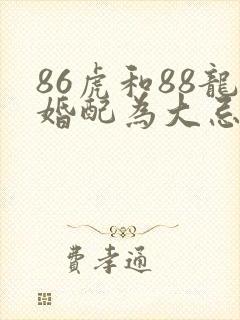 86虎和88龍
婚配為大忌
費孝通